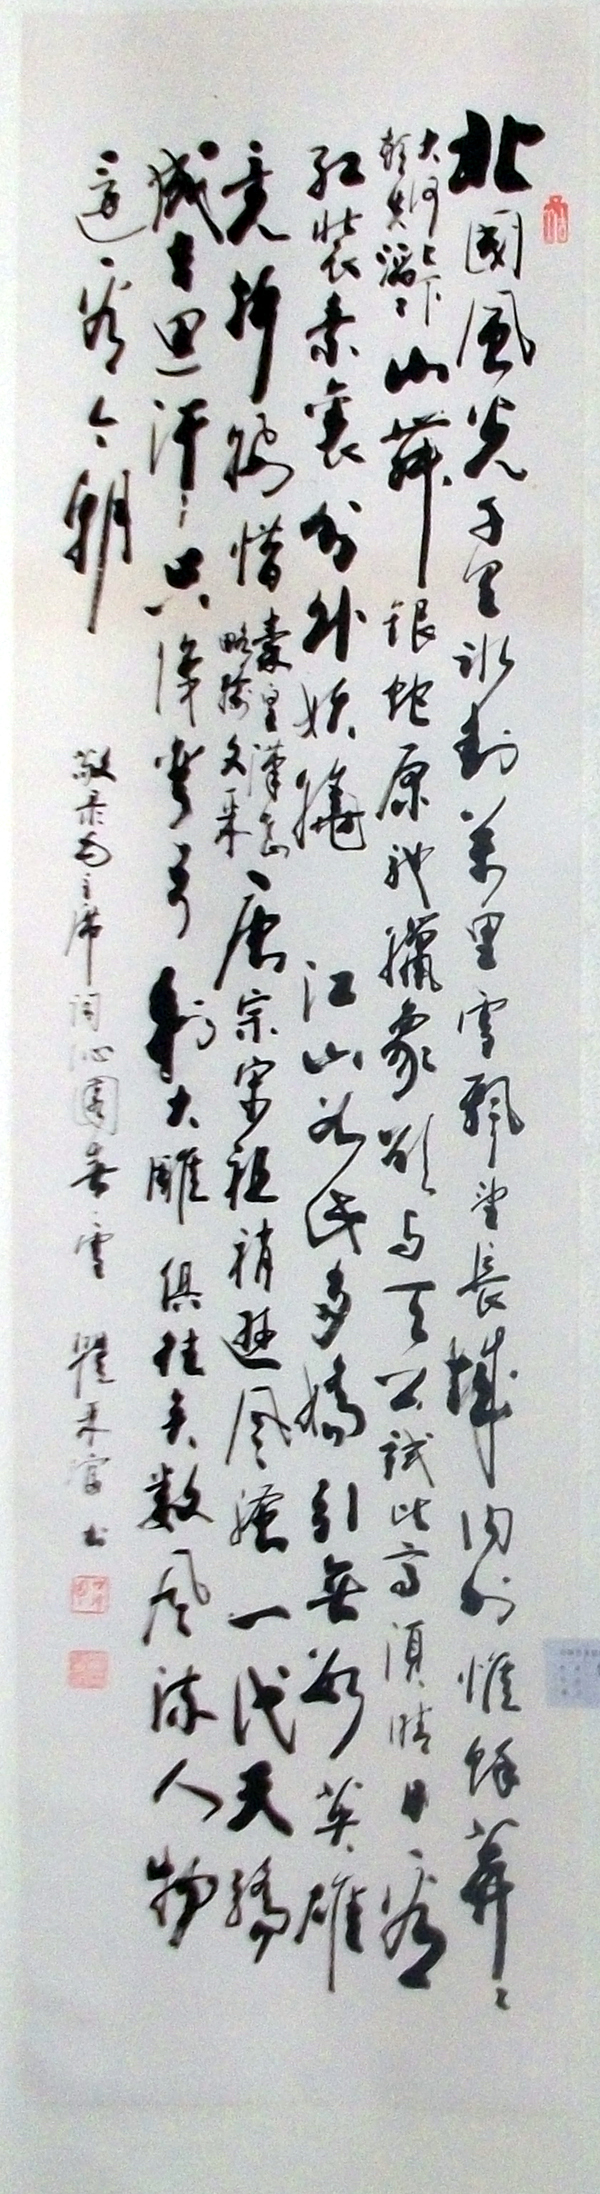 北國風光千里冰封萬里雪飄望長城内外惟餘莽々
大河上下頓失滔々山舞銀蛇原馳臘象欲与天公試比高須晴日看
红装素裹分外妖嬈 江山如此多嬌引無数英雄
竞折腰惜秦皇漢武略输文采唐宗宋祖稍遜风騷一代天驕
成吉思汗只识弯弓射大雕俱往矣数风流人物
還看今朝
敬录毛主席词沁園春雪 瞿 富书